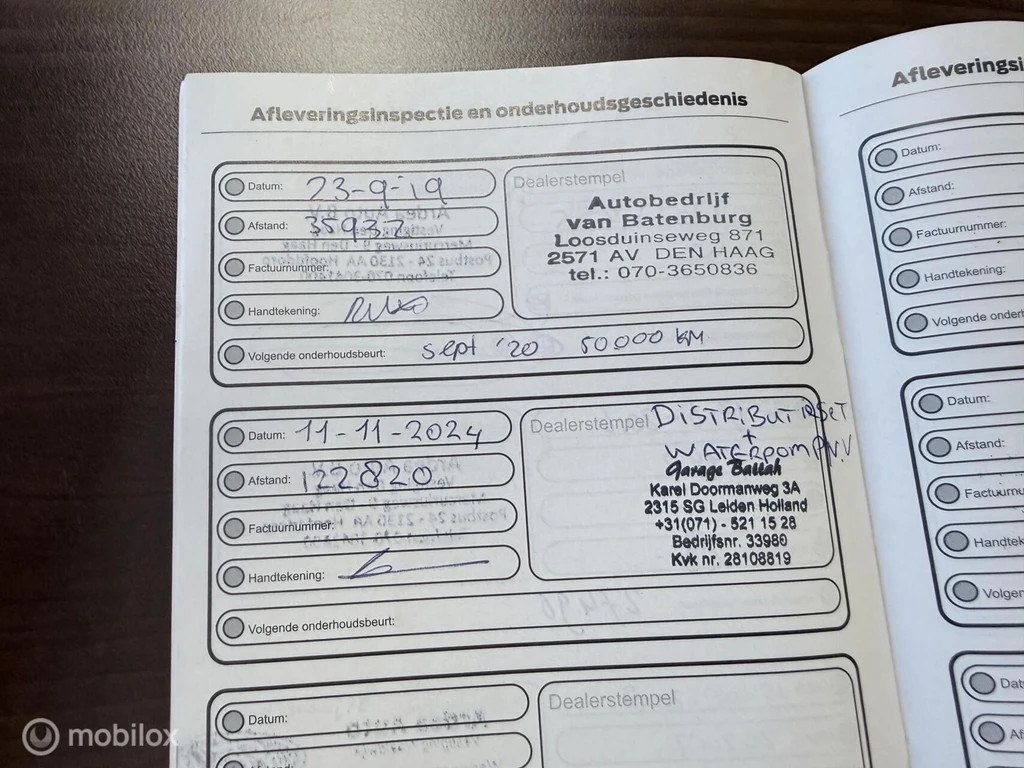 Afleveringsinspectie en onderhoudsgeschiedenis
Datum: 23-9-19
Afstand: 35937
Factuurnummer:
Handtekening:
Volgende onderhoudsbeurt: sept '20 50000 KM
Dealerstempel
Autobedrijf
van Batenburg
Loosduinseweg 871
2571 AV DEN HAAG
tel.: 070-3650836
Datum: 11-11-2024
Afstand: 122820
Factuurnummer:
Handtekening:
Volgende onderhoudsbeurt:
Dealerstempel DISTRIBUTIESET
+
WATERPOMP N.V
Garage Ballah
Karel Doormanweg 3A
2315 SG Leiden Holland
+31(071) - 521 15 28
Bedrijfsnr. 33980
Kvk nr. 28108819
Datum:
Dealerstempel
Afleveringsi
Datum:
Afstand:
Factuurnummer:
Handtekening:
Volgende onder
Datum:
Afstand:
Factuurnu
Handtek
Volgen
Dat
Af
mobilox